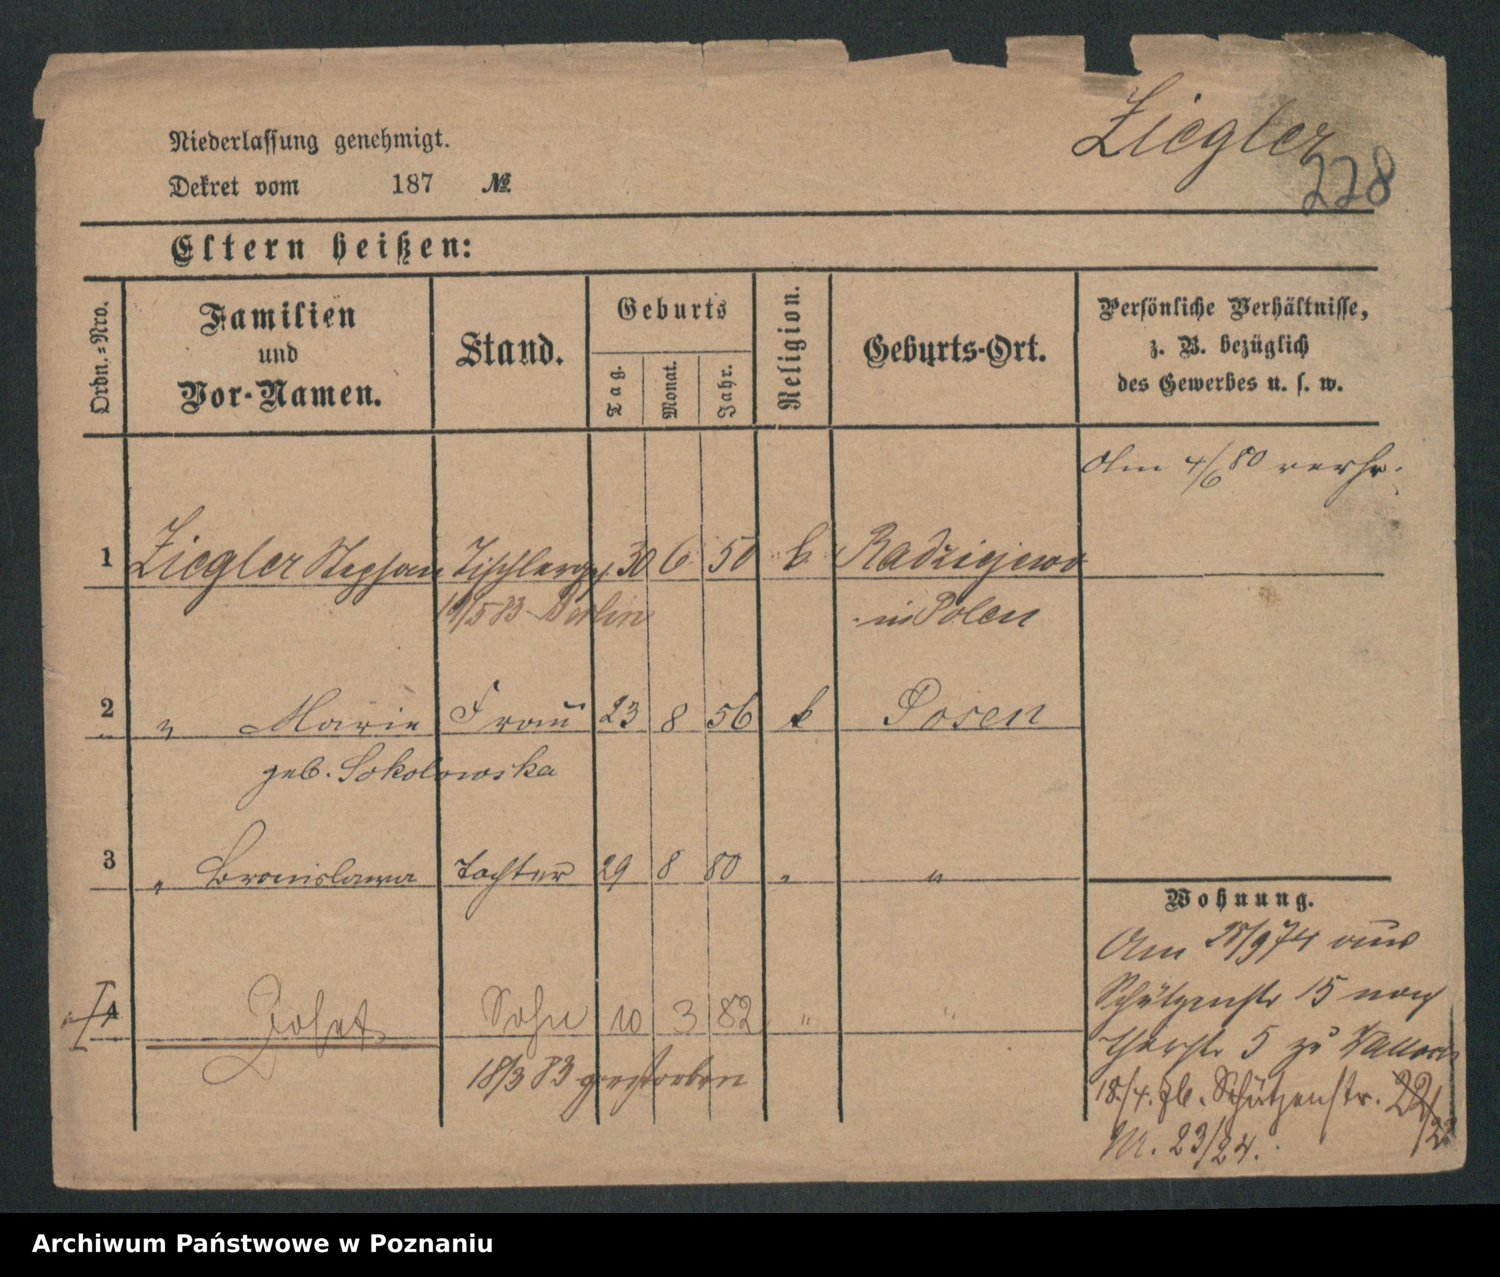 Ziegler
228
Niederlassung genehmigt.
Dekret vom 187 №
Eltern heißen:
Ordn.-Nro.
Familien und Vor-Namen.
Stand.
Geburts
Tag.
Monat.
Jahr.
Religion.
Geburts-Ort.
Persönliche Verhältnisse,
z. B. bezüglich
des Gewerbes u. s. w.
Am 4/6 80 verh.
1 Ziegler Stephan Tischlerges. 30 6 50 k Radziejewo
19/5 83 Berlin in Polen
2 " Marie Frau 23 8 56 k Posen
geb. Sokolowska
3 " Bronislawa Tochter 29 8 80 " "
Wohnung.
Am 25/9 74 aus
Schützenstr 15 nach
5 zu
4 Sohn 10 3 82 " "
18/3 83 gestorben
18./4. Schützenstr. 22/23
Nr. 23/24.
Archiwum Państwowe w Poznaniu